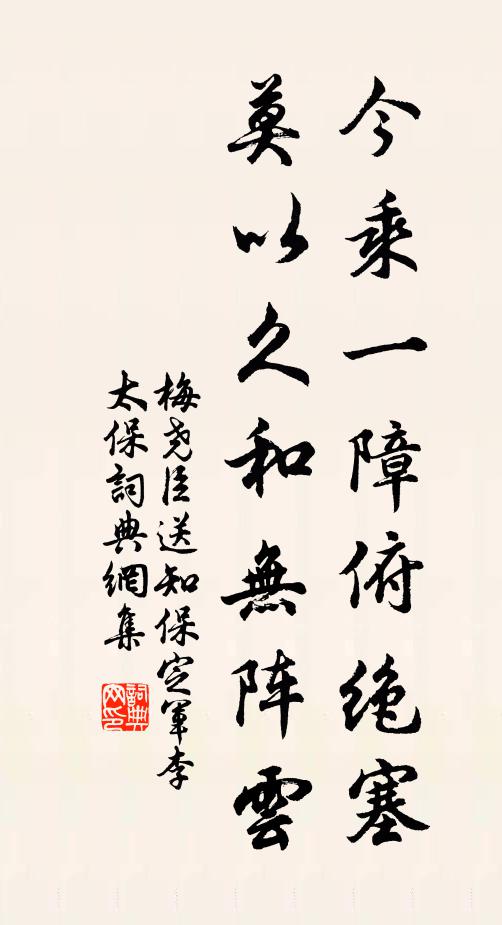 今乘一障俯绝塞
莫以久和無阵雲
梅尧臣送知保定軍李
太保詞典網集
詞典
网印